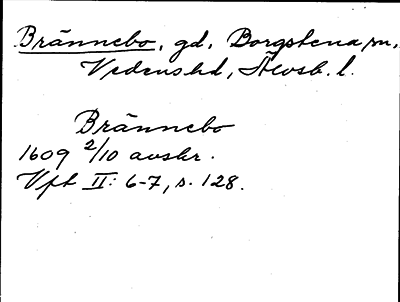 Brännebo, gd, Borgstena sn,
Vedens hd, Älvsb. l.
Brännebo
1609 2/10 avskr.
Vft II: 6-7, s. 128.